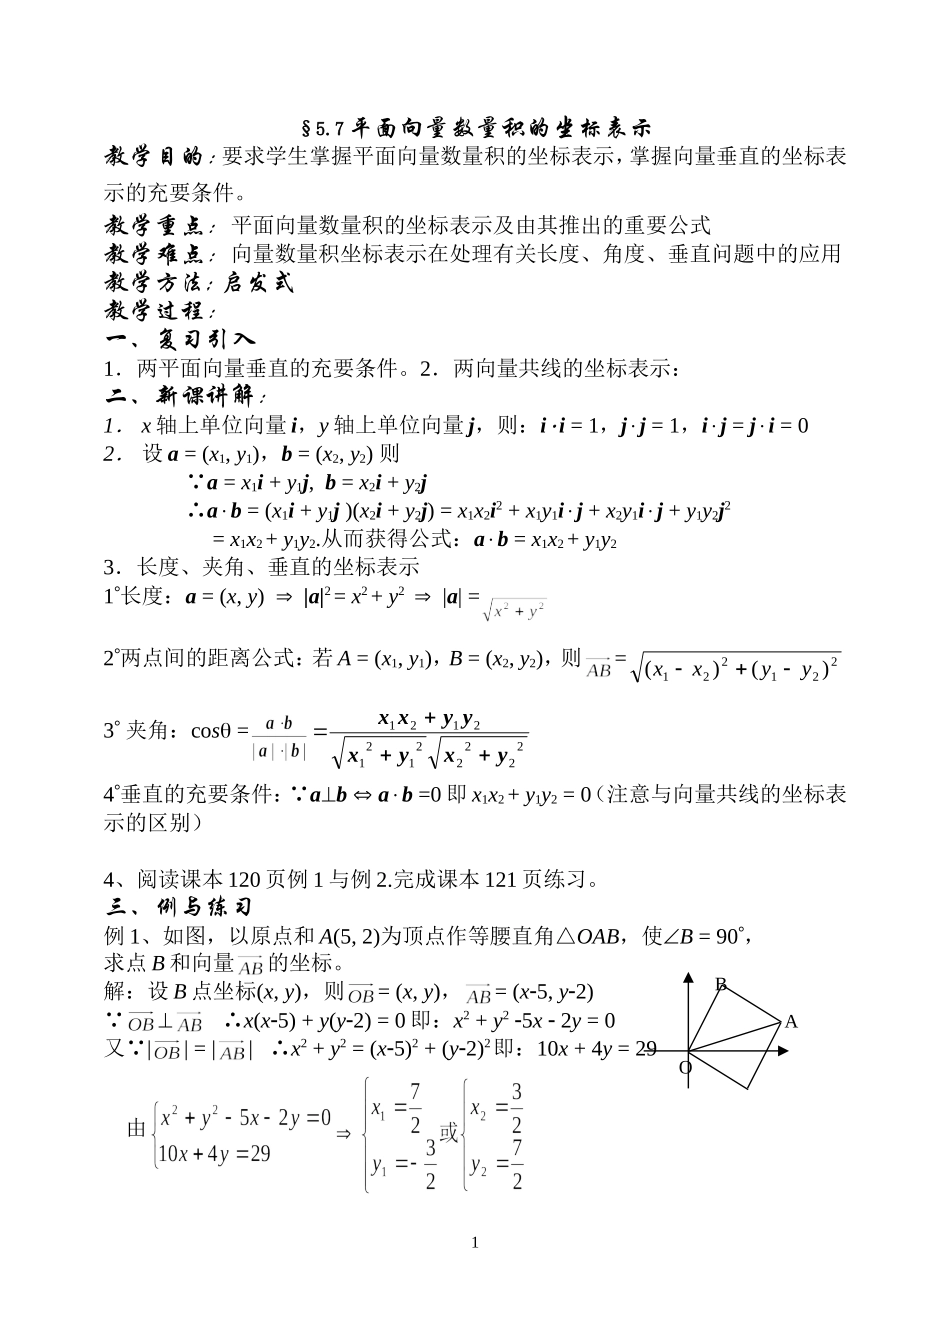 §5.7 平面向量数量积的坐标表示
教学目的：要求学生掌握平面向量数量积的坐标表示，掌握向量垂直的坐标表
示的充要条件。
教学重点： 平面向量数量积的坐标表示及由其推出的重要公式
教学难点： 向量数量积坐标表示在处理有关长度、角度、垂直问题中的应用
教学方法：启发式
教学过程：
一、 复习引入
1．两平面向量垂直的充要条件。2．两向量共线的坐标表示：
二、 新课讲解：
1． x 轴上单位向量 i，y 轴上单位向量 j，则：i⋅i = 1，j⋅j = 1，i⋅j = j⋅i = 0
2． 设 a = (x₁, y₁)，b = (x₂, y₂) 则
∵a = x₁i + y₁j, b = x₂i + y₂j
∴a⋅b = (x₁i + y₁j )(x₂i + y₂j) = x₁x₂i² + x₁y₁i⋅j + x₂y₁i⋅j + y₁y₂j²
= x₁x₂ + y₁y₂.从而获得公式：a⋅b = x₁x₂ + y₁y₂
3．长度、夹角、垂直的坐标表示
1°长度：a = (x, y) ⇒ |a|² = x² + y² ⇒ |a| = √(x² + y²)
2°两点间的距离公式：若 A = (x₁, y₁)，B = (x₂, y₂)，则 AB = √((x₁ − x₂)² + (y₁ − y₂)²)
3° 夹角：cosθ = a⋅b / |a|⋅|b| = (x₁x₂ + y₁y₂) / (√(x₁² + y₁²) √(x₂² + y₂²))
4°垂直的充要条件：∵a⊥b ⇔ a⋅b =0 即 x₁x₂ + y₁y₂ = 0（注意与向量共线的坐标表
示的区别）
4、阅读课本 120 页例 1 与例 2.完成课本 121 页练习。
三、 例与练习
例 1、如图，以原点和 A(5, 2)为顶点作等腰直角△OAB，使∠B = 90°，
求点 B 和向量 AB 的坐标。
解：设 B 点坐标(x, y)，则 OB = (x, y)， AB = (x-5, y-2)
∵ OB ⊥ AB ∴x(x-5) + y(y-2) = 0 即：x² + y² -5x - 2y = 0
又∵| OB | = | AB | ∴x² + y² = (x-5)² + (y-2)²即：10x + 4y = 29
B
A
O
由 { x² + y² − 5x − 2y = 0 10x + 4y = 29 ⇒ { x₁ = 7/2 y₁ = −3/2 或 { x₂ = 3/2 y₂ = 7/2
1